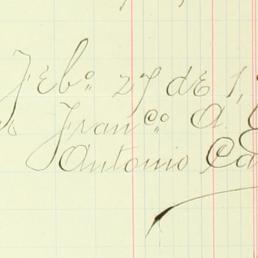 Feb.o 27 de 1,
Fran.co A.
Antonio Ca